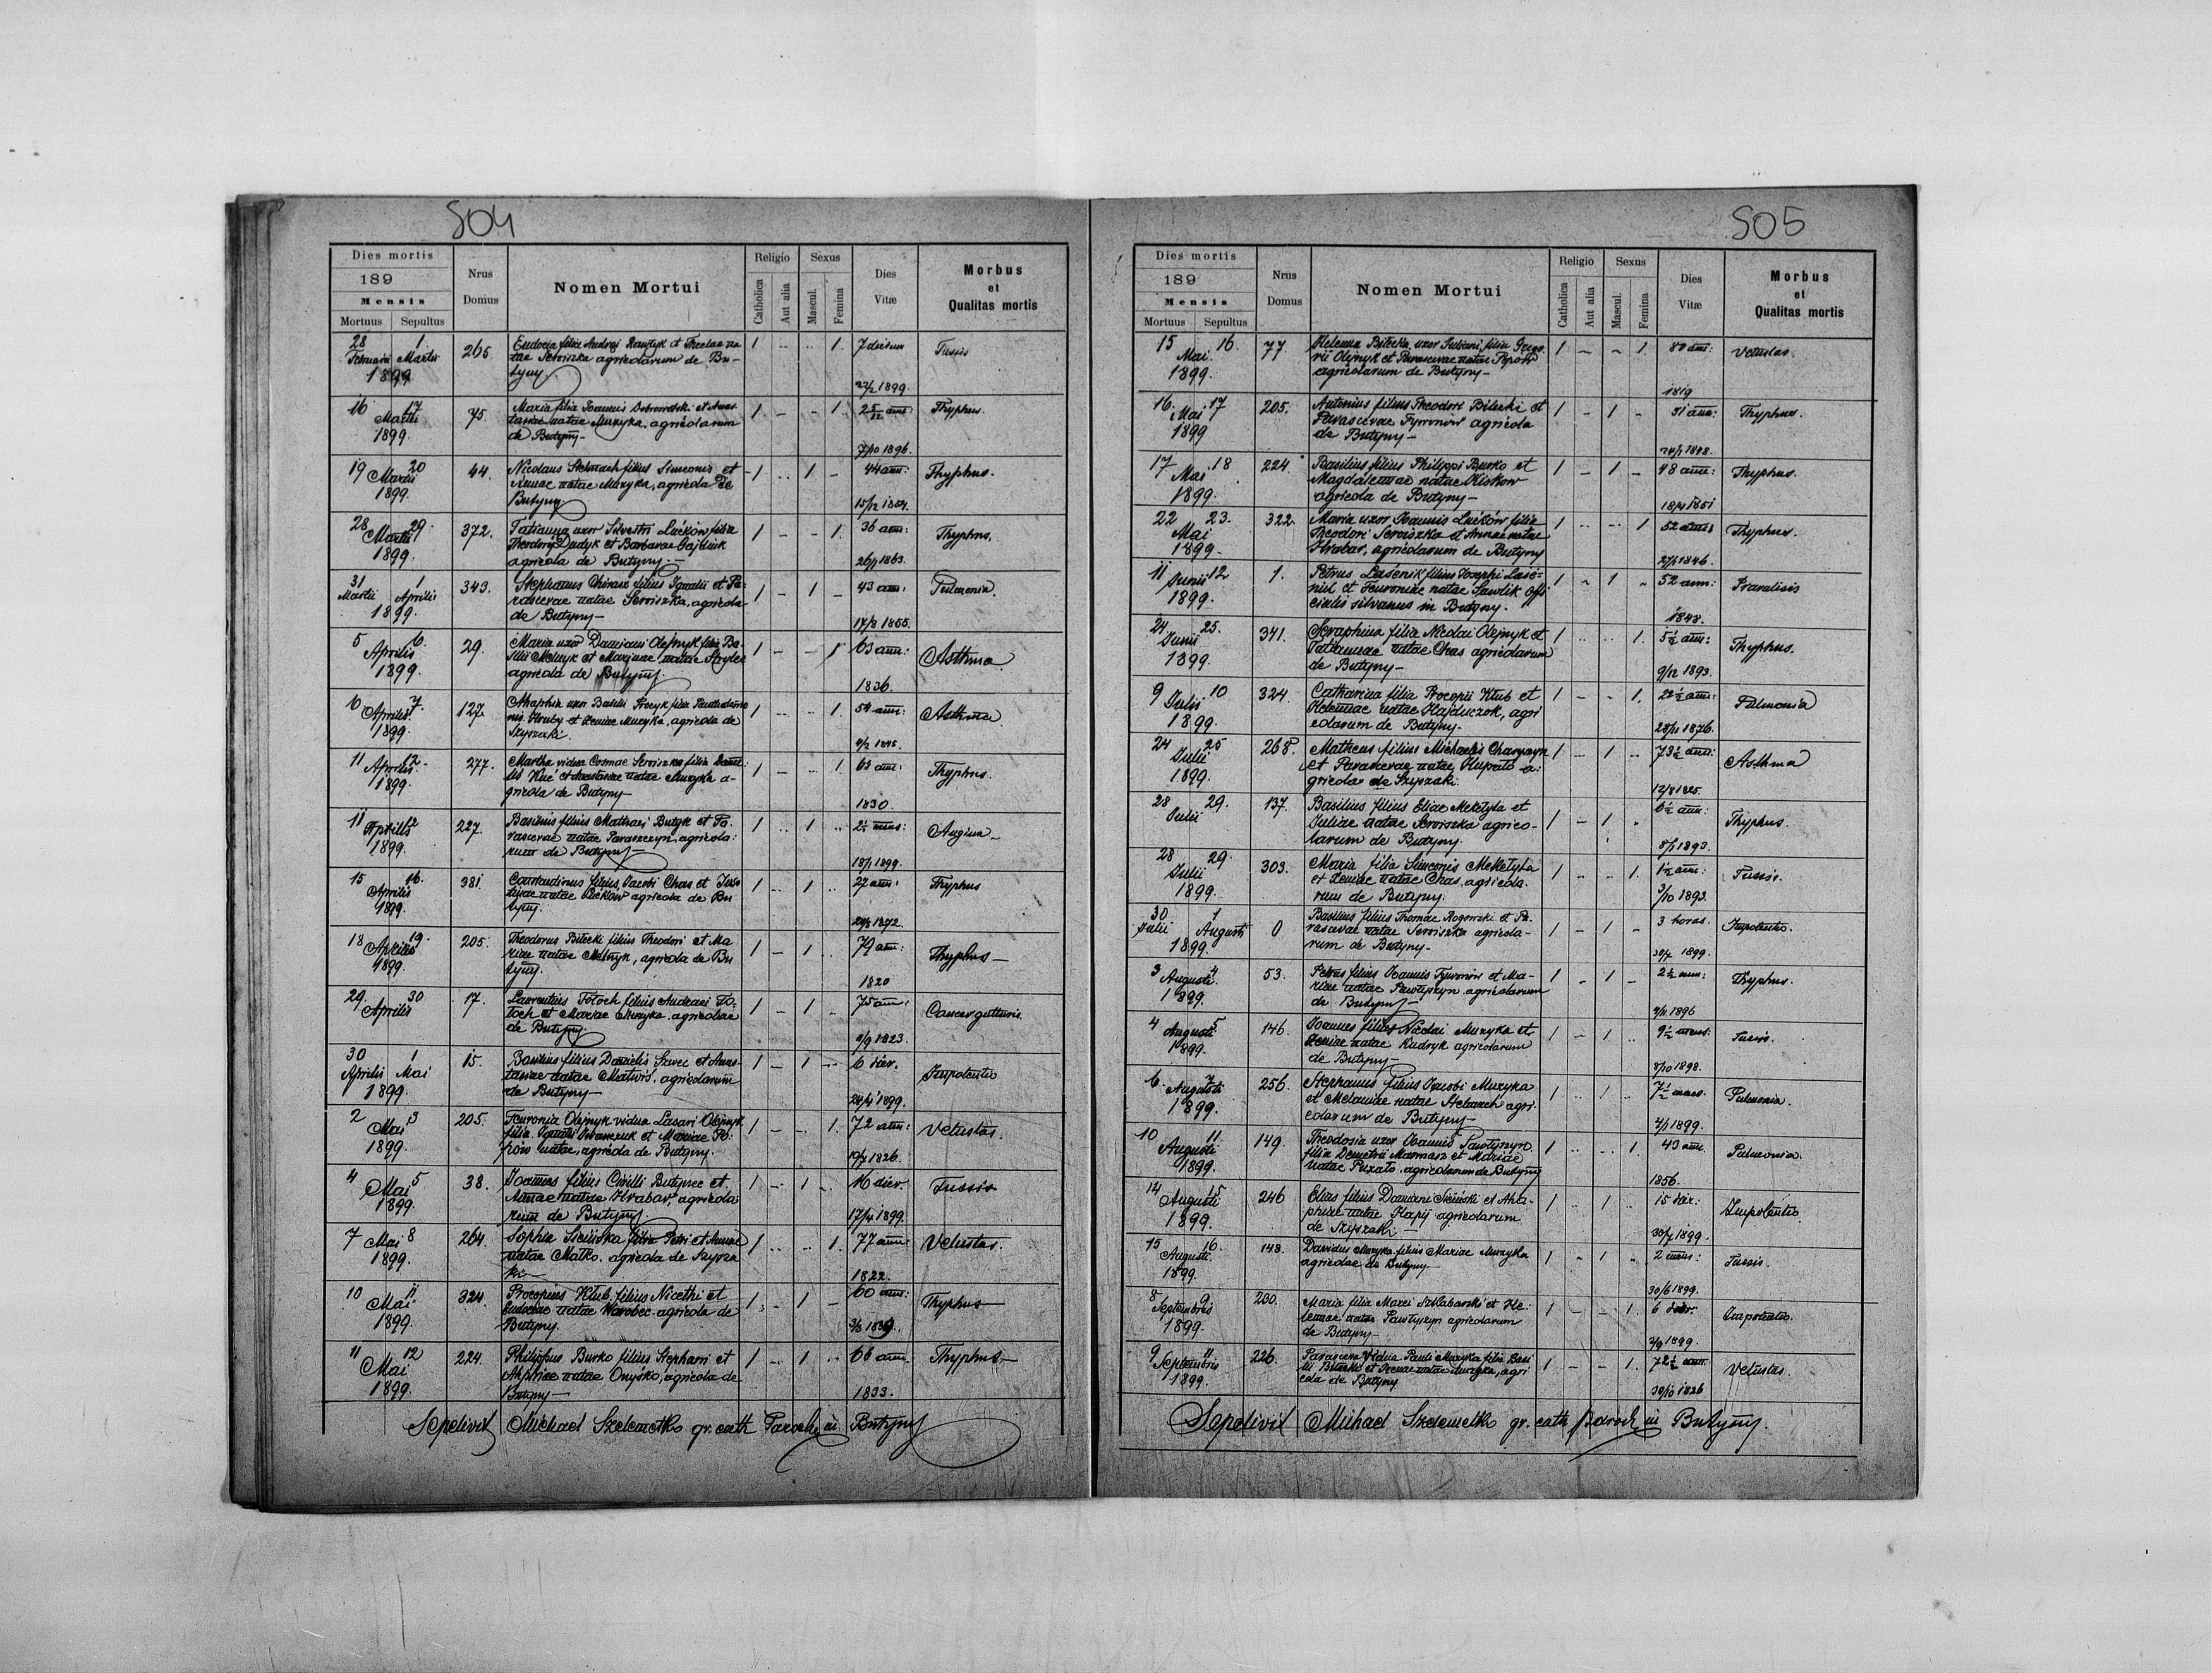 504
Dies mortis
189
Mensis
Mortuus Sepultus
Nrus Domus
Nomen Mortui
Religio
Catholica Aut alia
Sexus
Mascul. Femina
Dies Vitæ
Morbus et Qualitas mortis
28 1. 265. Eudocia filia Andrej et Theclae na 1 1. 7 dierum Tussis
Februarii Martii tae Serviszka agricolarum de Bu-
1899 tyny. 22/2 1899.
16 17 75. Maria filia Joannis Dobrowolski et Anas 1. 1. 2 5/12 ann: Thyphus.
Martii tasiae natae Muzyka, agricolarum
1899. de Butyny 7/10 1896.
19 20 44. Nicolaus Stelmach filius Simeonis et 1 1 44 ann: Thyphus.
Martii Annae natae Muzyka, agricola de
1899. Butyny 15/12 1854.
28 29. 372. Tatianna uxor Silvestri Lućków filia 1 1. 36 ann: Thyphus.
Martii Theodori Dudyk et Barbarae Gajduk
1899. agricola de Butyny. 26/1 1863.
31 1 343. Stephanus filius Ignatii et Pa- 1 1 43 ann: Pulmonia.
Martii Aprilis rascevae natae Serviszka, agricola
1899. de Butyny 17/8 1855.
5 6. 29. Maria uxor Damiani Olejnyk filia Ba- 1 1 63 ann: Asthma
Aprilis silii Melnyk et Marinae natae
1899. agricola de Butyny. 1836.
6 7 127 Ahaphia uxor Basilii Procyk filia 1 1. 54 ann: Asthma
Aprilis Hruby et Xeniae Muzyka, agricola de
1899. Szyszaki. 1845.
11 12 277. Martha vidua Cosmae Serviszka filia 1 1. 63 ann: Thyphus.
Aprilis et Anastasiae natae Muzyka a-
1899. gricola de Butyny 1830.
11 12 227. Basilius filius Mathaei et Pa- 1 1 2½ mens: Angina
Aprilis rascevae natae agricola-
1899. rum de Butyny 18/1 1899.
15 16. 381. Constandinus filius Jacobi Chas et 1 1 27 ann: Thyphus
Aprilis natae Lućków agricola de Bu
1899. tyny. 1872.
18 19. 205. Theodorus Bilecki filius Theodori et Ma 1 1 79 ann: Thyphus
Aprilis riae natae Melnyk, agricola de Bu
1899. tyny. 1820
29. 30 17. Laurentius Totoch filius Andreae To- 1 1 75 ann: Cancer gutturis.
Aprilis toch et Mariae Muzyka, agricolae
de Butyny. 1823
30 1 15. Basilius filius Danielis Szwec et Anas- 1 1 6 dier. Impotentia
Aprilis Mai tasiae natae Matwis, agricolarum
1899. de Butyny 24/4 1899.
2 3 205. Feuronia Olejnyk vidua Lasari Olejnyk 1 1. 72 ann: Vetustas.
Mai filia Iwanczuk et Mariae Po-
1899. pów natae, agricola de Butyny. 1826.
4 5 38. Joannes filius Cirilli Butynec et 1 1 16 dier. Tussis
Mai Annae natae Hrabar, agricola-
1899. rum de Butyny. 17/4 1899.
7 8 264. Sophia Sicińska filia Petri et Annae 1 1. 77 ann: Vetustas.
Mai natae Matko. agricola de Szysza
1899. ki 1822.
10 11 324. Procopius Klub filius Nicethi et 1 1 60 ann: Thyphus
Mai Eudociae natae Worobec agricola de
1899. Butyny. 1839.
11 12 224. Philippus Burko filius Stephani et 1 1 66 ann. Thyphus
Mai Ahphiae natae Onyśko, agricola de
1899. Butyny 1833.
Sepelivit Michael Szelemetko gr. cath Paroch in Butyny
505
Dies mortis
189
Mensis
Mortuus Sepultus
Nrus Domus
Nomen Mortui
Religio
Catholica Aut alia
Sexus
Mascul. Femina
Dies Vitæ
Morbus et Qualitas mortis
15 16 77. Helenna Bilecka, uxor Juliani, filia Grego- 1 1. 80 ann: Vetustas.
Mai. rii Olejnyk et Parascevae natae Popów
1899. agricolarum de Butyny 1819
16. 17 205. Antonius filius Theodori Bilecki et 1 1 51 ann: Thyphus.
Mai Parascevae Tymniów agricola
1899 de Butyny 1848.
17 18 224. Basilius filius Philippi Burko et 1 1 48 ann: Thyphus.
Mai Magdalennae natae Kiskow
1899. agricola de Butyny 1851
22 23. 322. Maria uxor Joannis Lućków filia 1 1 52 ann: Thyphus.
Mai Theodori Serwiszka et Annae natae
1899. Hrabar, agricolarum de Butyny 1846.
11 12 1. Petrus Laśenik filius Josephi Laśe- 1 1 52 ann: Paralisis
Junii nik et Feuroniae natae Sawlik offi
1899. cialis silvanus in Butyny. 1848.
24 25. 341. Seraphina filia Nicolai Olejnyk et 1 1. 5½ ann: Thyphus.
Junii Tatiannae natae Chas agricolarum
1899. de Butyny 9/12 1893.
9 10 324. Catharina filia Procopii Klub et 1 1. 22½ ann: Pulmonia
Julii Helennae natae Hajduczok, agri
1899. colarum de Butyny. 1876.
24 25 268. Matheus filius Michaelis 1 1 73½ ann: Asthma
Julii et Parascevae natae Hupalo a-
1899. gricola de Szyszaki. 1825.
28 29. 137. Basilius filius Eliae Meketyla et 1 1 6½ ann: Thyphus.
Julii Juliae natae Serviszka agrico-
larum de Butyny. 1893.
28 29. 303. Maria filia Simeonis Meketyla 1 1. 1½ ann: Tussis.
Julii et Xeniae natae Chas, agricola-
1899. rum de Butyny. 3/10 1893.
30 1 0 Basilius filius Thomae Rogowski et Pa- 1 1 3 horas. Impotentia.
Julii Augusti rascevae natae Serviszka agricola-
1899. rum de Butyny 30/7 1899.
3 4 53. Petrus filius Joannis Tywoniw et Ma- 1 1 2½ ann: Thyphus.
Augusti. riae natae Pawlyszyn agricolarum
1899. de Butyny 1896
4 5 146. Joannes filius Nicolai Muzyka et 1 1 9½ mens: Tussis.
Augusti Xeniae natae Kudryk agricolarum
1899. de Butyny 8/10 1898.
6 7 256. Stephanus filius Jacobi Muzyka 1 1 7½ mens. Pulmonia.
Augusti et Melaniae natae Stelmach agri-
1899. colarum de Butyny 1899.
10 11 149. Theodosia uxor Joannis Pawlyszyn 1 1 43 ann. Pulmonia.
Augusti filia Demetrii Marmasz et Mariae
1899. natae Puzalo, agricolarum de Butyny 1856.
14 15 246 Elias filius Damiani Siciński et Aha- 1 1 15 dier: Impotentia.
Augusti phiae natae Hapij agricolarum
1899. de Szyszaki 30/7 1899.
15 16. 148. Davidus Muzyka filius Mariae Muzyka 1 1 2 mens: Tussis.
Augusti. agricolae de Butyny
1899. 30/6 1899.
8 9 230. Maria filia Marci Szklabowski et He- 1 1. 6 dier. Impotentia.
Septembris lennae natae Pawlyszyn agricolarum
1899. de Butyny 2/9 1899.
9 11 226. Parasceva vidua Pauli Muzyka filia Basi 1 1. 72½ ann. Vetustas.
Septembris lii Bilecki et Xeniae natae Muzyka, agri
1899. cola de Butyny 30/10 1826
Sepelivit Michael Szelemetko gr. cath paroch in Butyny.